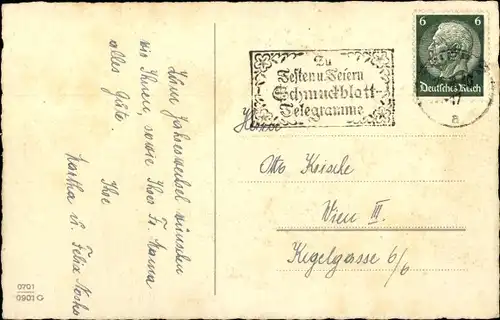 Zum Jahreswechsel wünschen
wir Ihnen, sowie Ihrer Fr. Mama
alles Gute.
Ihre
Martha u. Felix
0701
0901 G
Zu
Festen u. Feiern
Schmuckblatt-
Telegramme
6 6
Deutsches Reich
a
Herrn
Otto
Wien III.
Kegelgasse 6/6